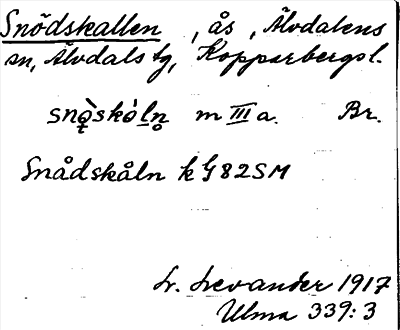 Snödskallen, ås, Älvdalens
sn, Älvdals tg, Kopparbergs l.
snǫ̀skóln̥ m III a. Br.
Snådskåln k G82SM
L. Levander 1917
Ulma 339:3